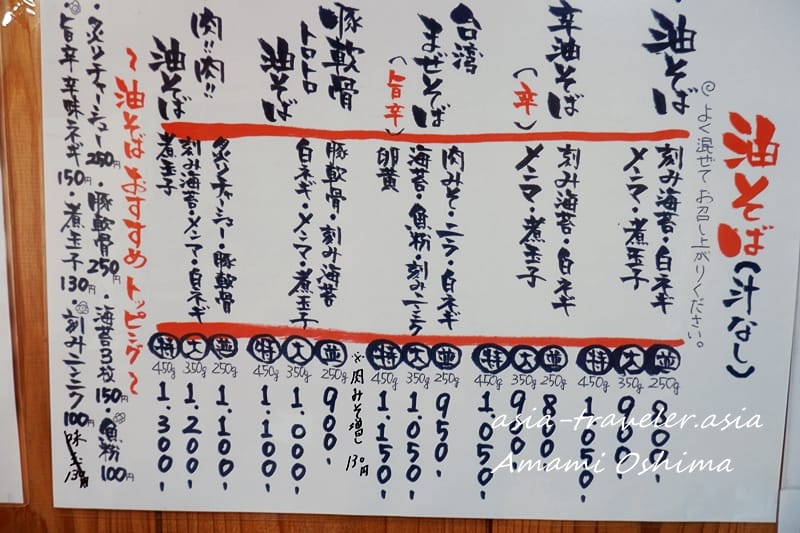 油そば(汁なし)
◎よく混ぜてお召し上がりください。
油そば
刻み海苔・白ネギ
メンマ・煮玉子
並 250g 800.
大 350g 900.
特 450g 1.050.
辛油そば
(辛)
刻み海苔・白ネギ
メンマ・煮玉子
並 250g 800.
大 350g 900.
特 450g 1.050.
台湾
まぜそば
(旨辛)
肉みそ・ニラ・白ネギ
海苔・魚粉・刻みニンニク
卵黄
並 250g 950.
大 350g 1.050.
特 450g 1.150.
※肉みそ増し 130円
豚軟骨
トロトロ
油そば
豚軟骨・刻み海苔
白ネギ・メンマ・煮玉子
並 250g 900.
大 350g 1.000.
特 450g 1.100.
肉!!肉!!
油そば
炙りチャーシュー・豚軟骨
刻み海苔・メンマ・白ネギ
煮玉子
並 250g 1.100.
大 350g 1.200.
特 450g 1.300.
〜油そばおすすめトッピング〜
・炙りチャーシュー250円・豚軟骨250円・海苔3枚150円・魚粉100円
・旨辛辛味ネギ150円・煮玉子130円・刻みニンニク100円
味玉130円
asia-traveler.asia
Amami Oshima